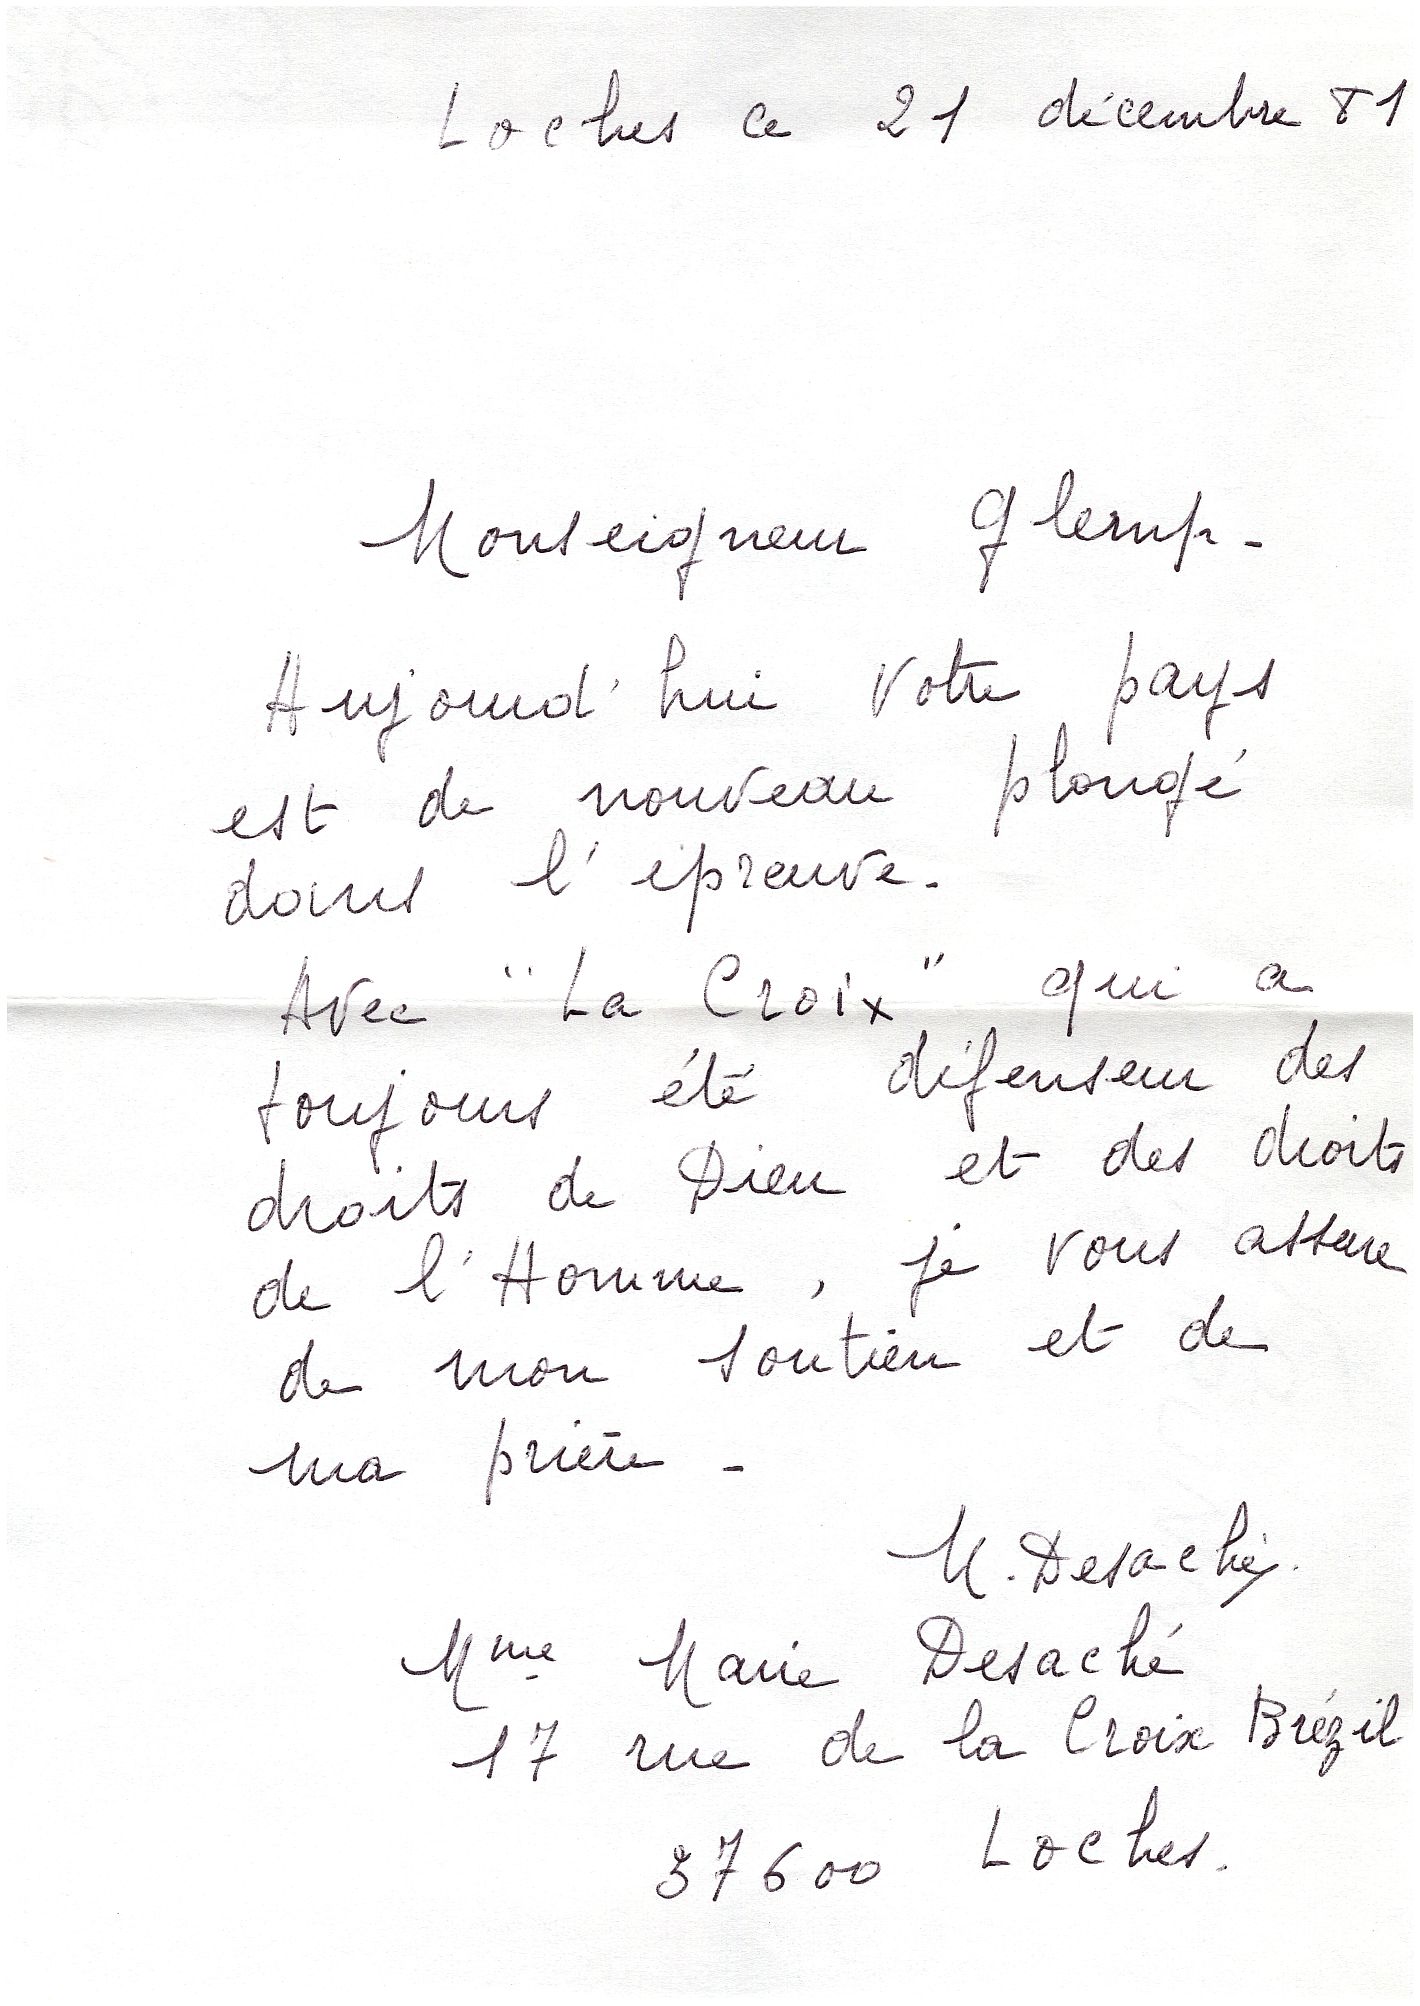 Loches ce 21 décembre 81
Monseigneur Glemp -
Aujourd'hui votre pays
est de nouveau plongé
dans l'épreuve.
Avec "La Croix" qui a
toujours été défenseur des
droits de Dieu et des droits
de l'Homme, je vous assure
de mon soutien et de
ma prière -
M. Desaché.
Mme Marie Desaché
17 rue de la Croix Brézil
37600 Loches.